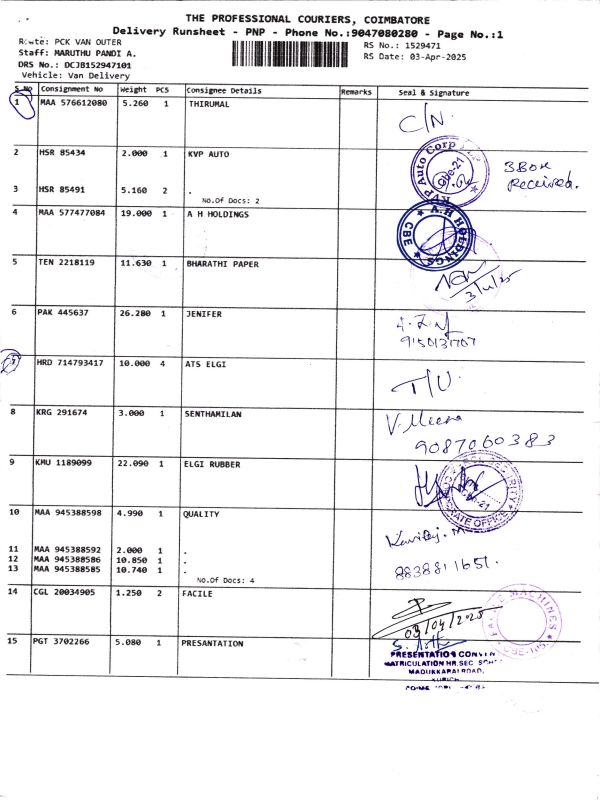 THE PROFESSIONAL COURIERS, COIMBATORE
Delivery Runsheet - PNP - Phone No.:9047080280 - Page No.:1
Route: PCK VAN OUTER
RS No.: 1529471
Staff: MARUTHU PANDI A.
RS Date: 03-Apr-2025
DRS No.: DCJB152947101
Vehicle: Van Delivery
S.No Consignment No Weight PCS Consignee Details Remarks Seal & Signature
1 MAA 576612080 5.260 1 THIRUMAL
C/N.
2 HSR 85434 2.000 1 KVP AUTO
KVP Auto Corp
Cbe-21
3 Box
Received.
3 HSR 85491 5.160 2 .
No.Of Docs: 2
4 MAA 577477084 19.000 1 A H HOLDINGS
A.H HOLDINGS
CBE
5 TEN 2218119 11.630 1 BHARATHI PAPER
3/4/25
6 PAK 445637 26.280 1 JENIFER
7 HRD 714793417 10.000 4 ATS ELGI
T/U
8 KRG 291674 3.000 1 SENTHAMILAN
V. Meena
9087060383
9 KMU 1189099 22.090 1 ELGI RUBBER
SECURITY
OFFICE
10 MAA 945388598 4.990 1 QUALITY
11 MAA 945388592 2.000 1 .
12 MAA 945388586 10.850 1 .
13 MAA 945388585 10.740 1 .
8838811651.
No.Of Docs: 4
14 CGL 20034905 1.250 2 FACILE
MACHINES
03/04/2025
15 PGT 3702266 5.080 1 PRESANTATION
PRESENTATION CONVEN
MATRICULATION HR.SEC SCH
MADUKKARAI ROAD,